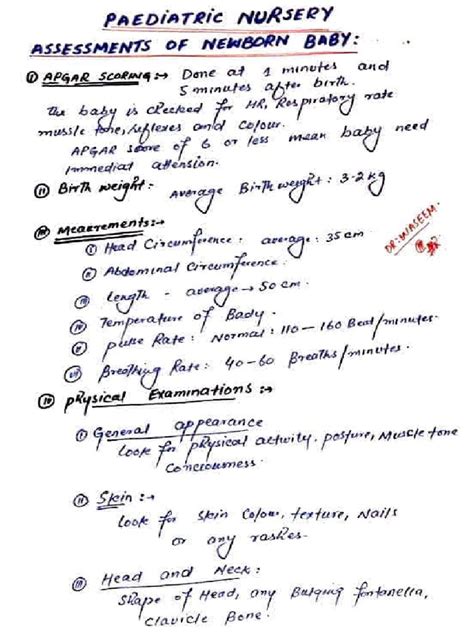 PAEDIATRIC NURSERY
ASSESSMENTS OF NEWBORN BABY:
(i) APGAR SCORING:→ Done at 1 minutes and
5 minutes after birth.
The baby is checked for HR, Respiratory rate
mussle tone, reflexes and colour.
APGAR score of 6 or less mean baby need
immediat attension.
(ii) Birth weight: Average Birth weight: 3.2 kg
(iii) Mearements:→
(i) Head Circumference: average: 35 cm
(ii) Abdominal Circumference.
(iii) Length - average → 50 cm.
(iv) Temperature of Bady.
(v) pulse Rate: Normal: 110 - 160 Beat/minutes.
(vi) Breathing Rate: 40-60 Breaths/minutes.
DR: WASEEM.
(iv) physical Examinations:→
(i) General appearance
Look for physical activity, posture, Muscle tone
Conciousness.
(ii) Skin:→
Look for skin Colour, texture, Nails
or any rashes.
(iii) Head and Neck:
Shape of Head, any Bulging fontanella,
clavicle Bone.